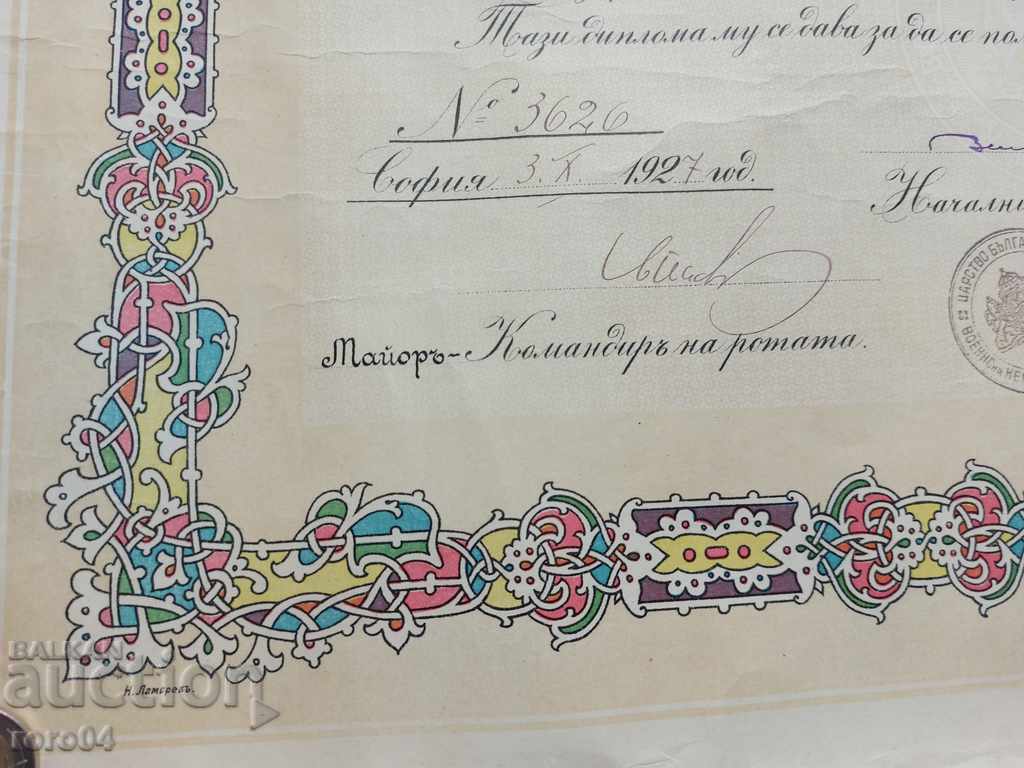 Тази диплома му се дава за да се пол
№ 3626
София 3. X. 1927 год.
Началн
ЦАРСТВО БЪЛГА
ВОЕННО
Майоръ - Командиръ на ротата.
BALKAN
auction
toro04